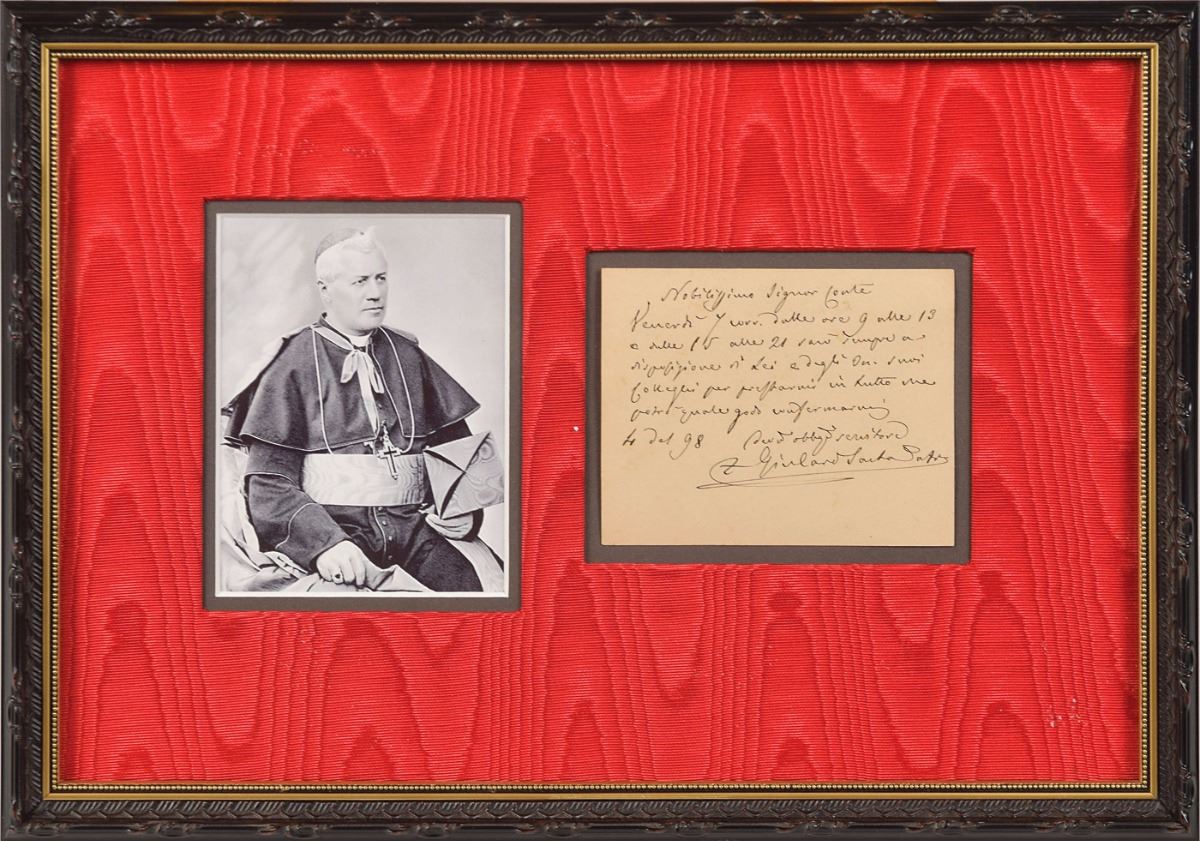 Nobilissimo Signor Conte
Venerdì 7 corr. dalle ore 9 alle 13
e dalle 15 alle 21 sarò sempre a
disposizione di Lei e degli On. suoi
Colleghi per prestarmi in tutto che
potrò quale godo confermarmi
4 del 98 Devmo obblmo servitore
+ Gius Card Sarto Patr